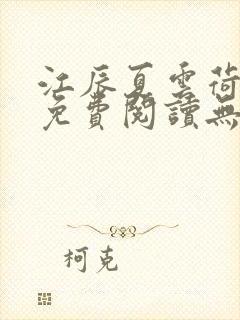 江辰夏雲荷
免費閱讀無
柯克